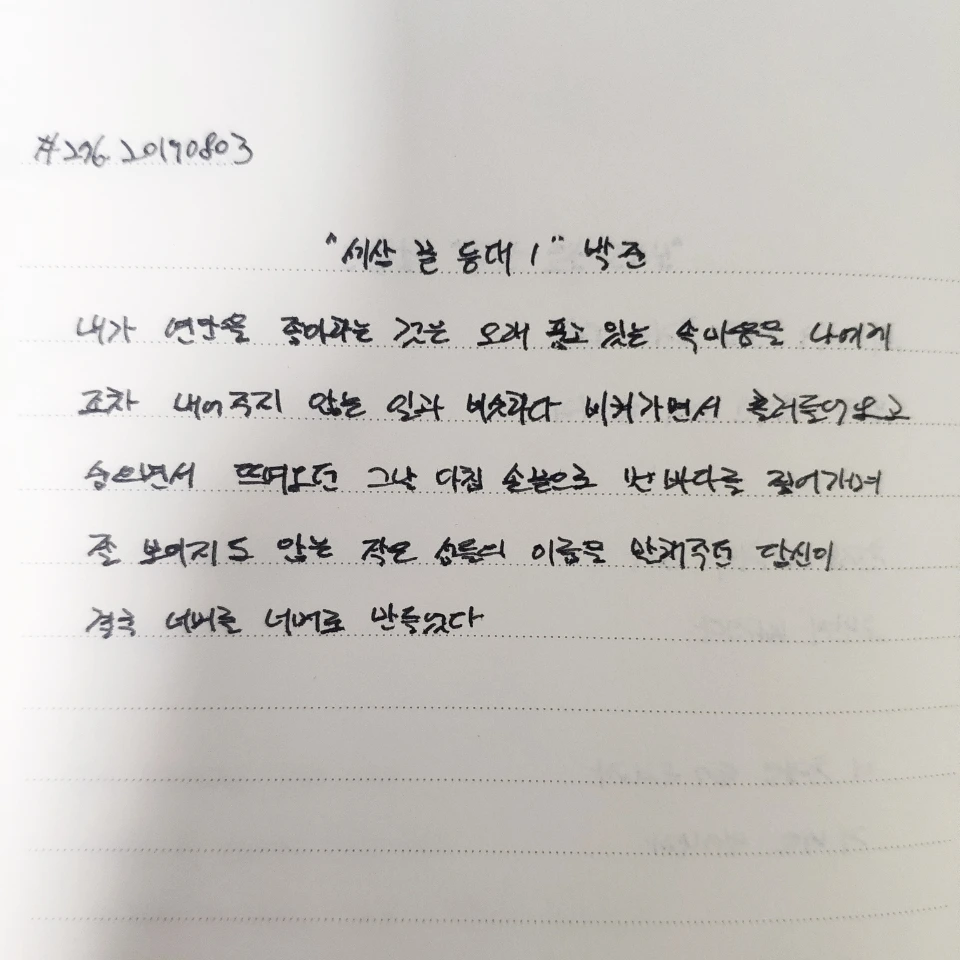 #276. 20190803
"세상 끝 등대 1" 박준
내가 연안을 좋아하는 것은 오래 품고 있는 속마음을 나에게
조차 내어주지 않는 일과 비슷하다 비켜가면서 흘러들어오고
숨으면서 뜨여오던 그날 아침 손끝으로 먼 바다를 짚어가며
잘 보이지도 않는 작은 섬들의 이름을 말해주던 당신이
결국 너머를 너머로 만들었다